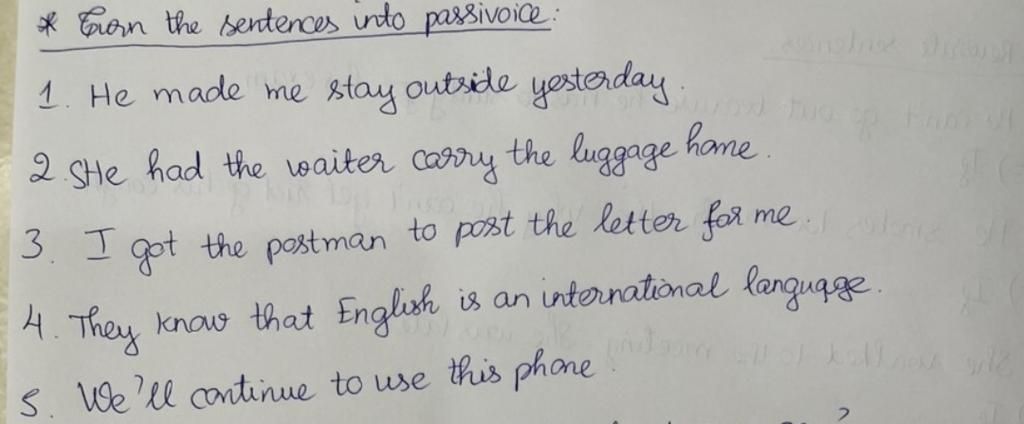 * Turn the sentences into passivoice:
1. He made me stay outside yesterday.
2. SHe had the waiter carry the luggage home.
3. I got the postman to post the letter for me.
4. They know that English is an international language.
5. We'll continue to use this phone
?